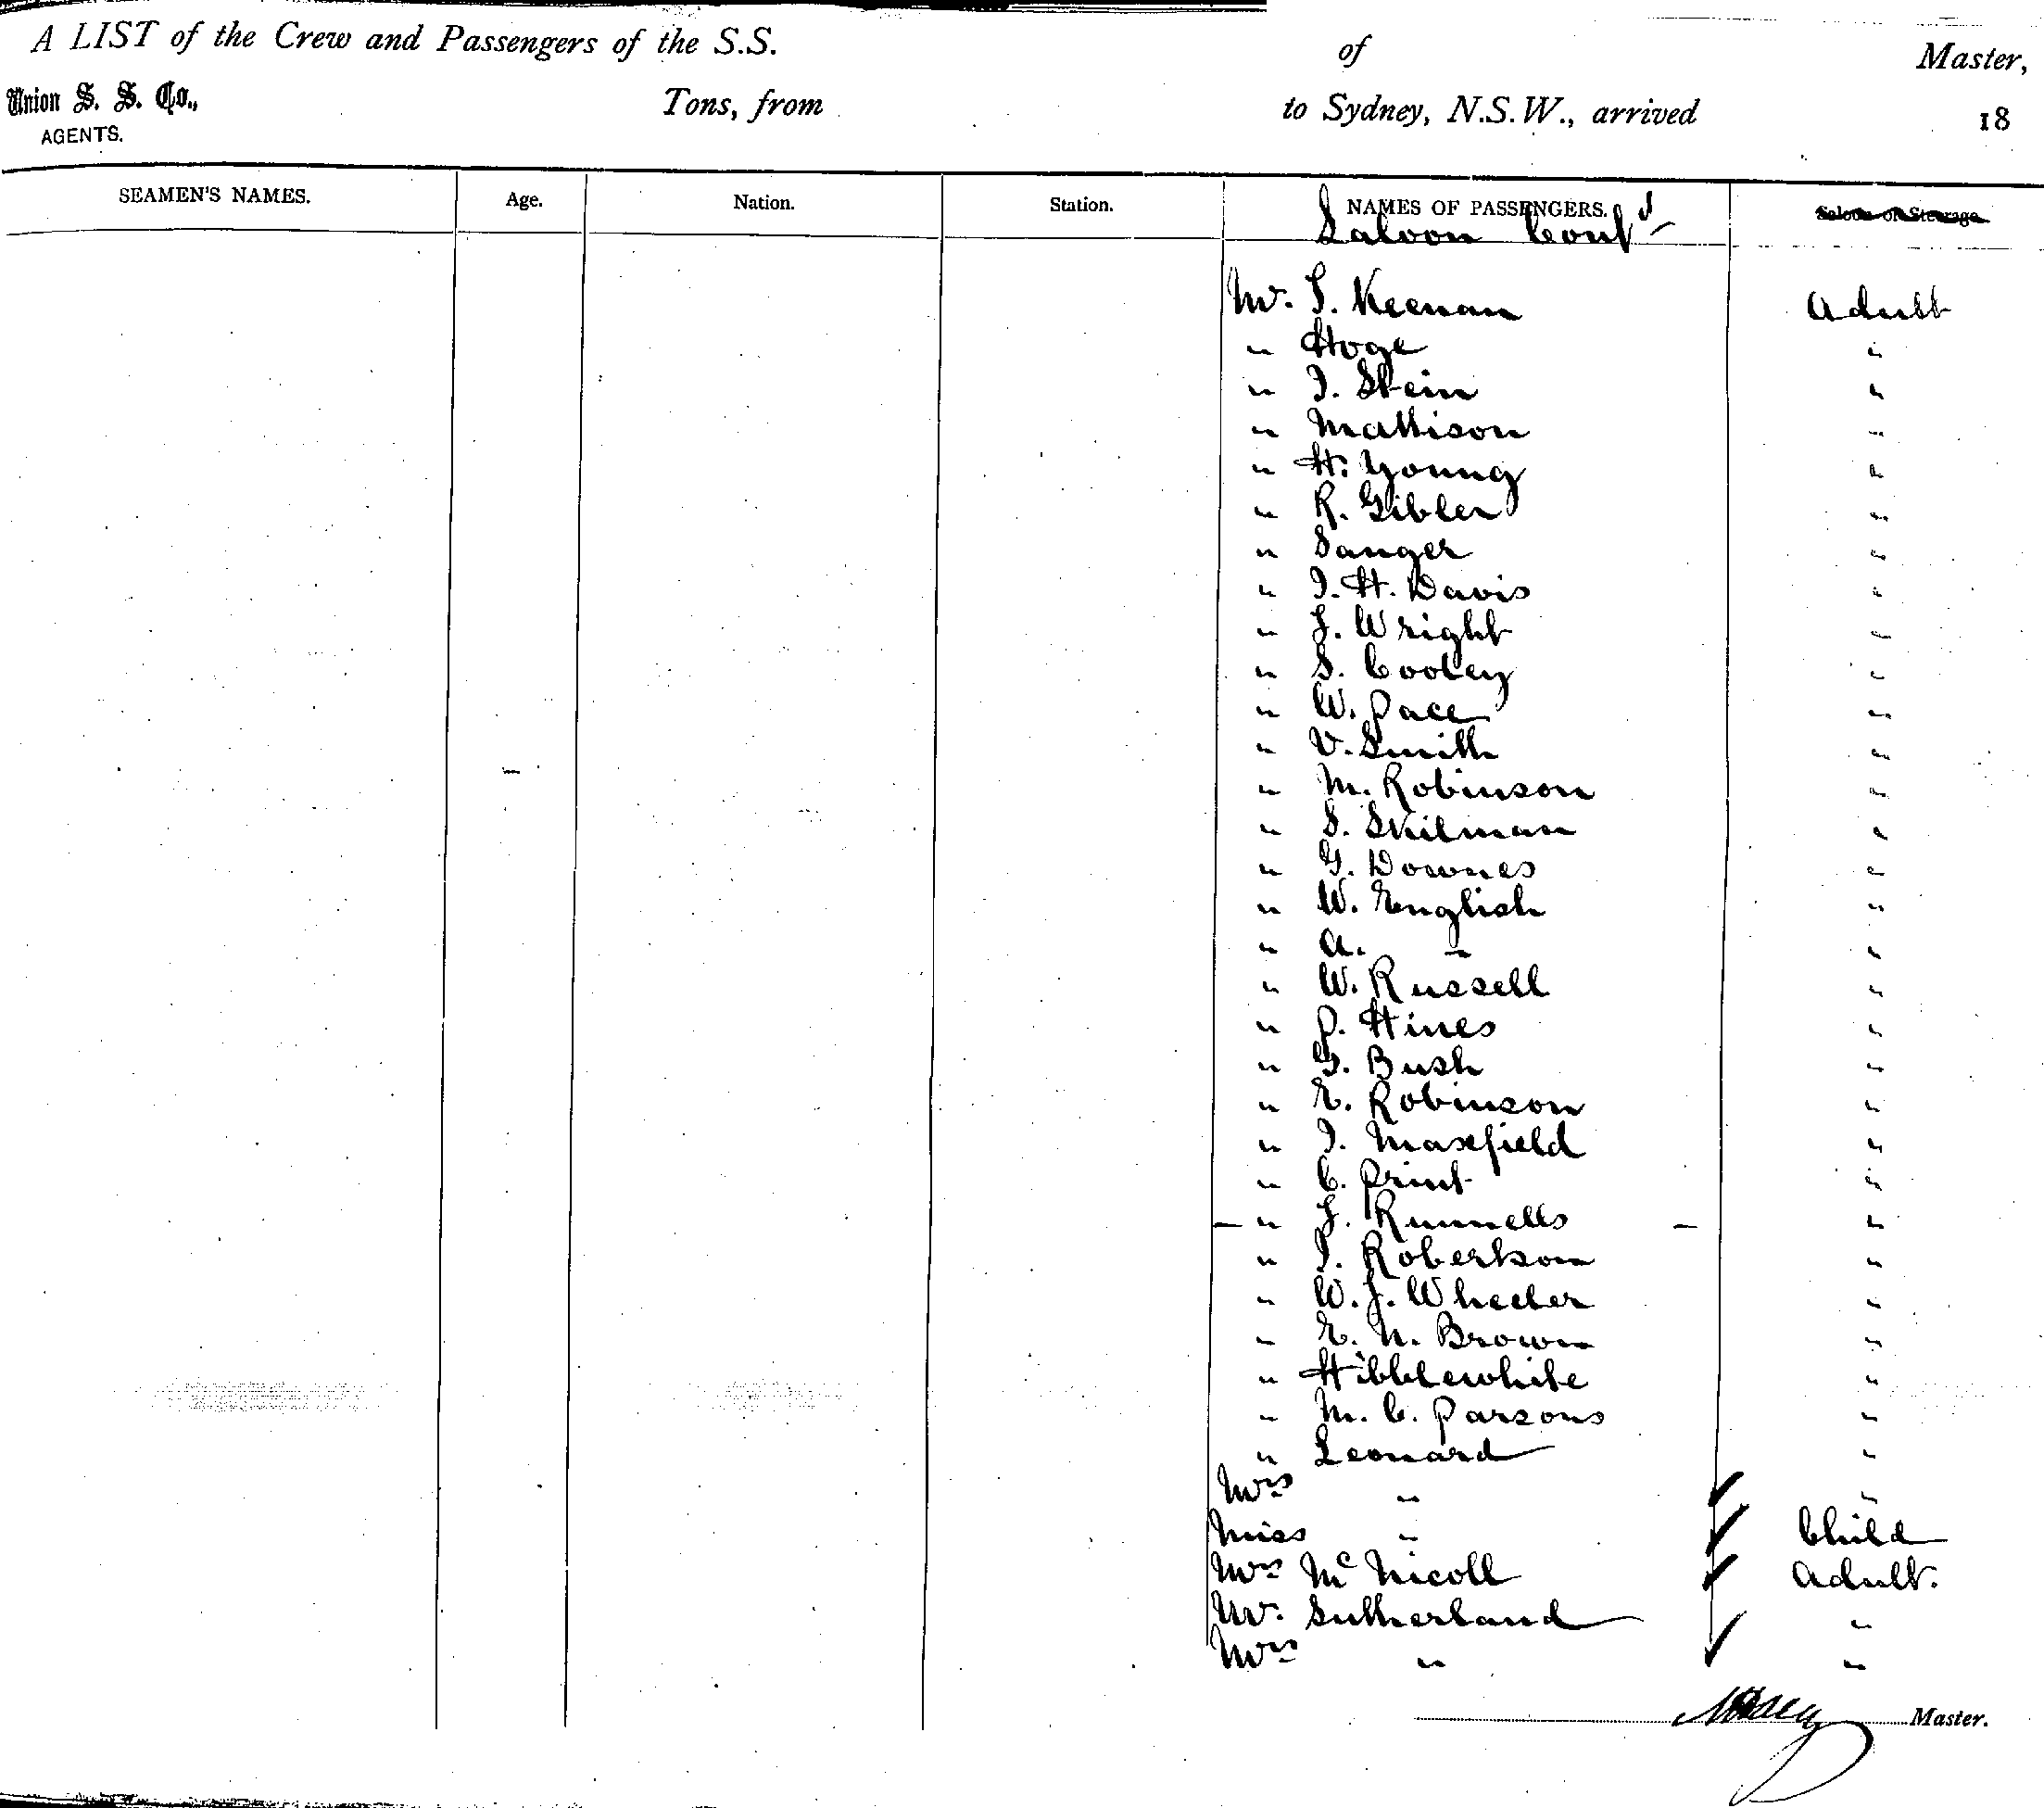 A LIST of the Crew and Passengers of the S.S. of Master,
Union S. S. Co., Tons, from to Sydney, N.S.W., arrived 18
AGENTS.
SEAMEN'S NAMES. Age. Nation. Station. NAMES OF PASSENGERS. Saloon or Steerage
Saloon Contd
Mr. T. Keenan Adult
" Hoge "
" I. Stein "
" Mathison "
" H. Young "
" R. Gibler "
" Sanger "
" I. H. Davis "
" J. Wright "
" S. Cooley "
" W. Pace "
" V. Smith "
" M. Robinson "
" S. Skilman "
" G. Downes "
" W. English "
" A. " "
" W. Russell "
" P. Hines "
" G. Bush "
" E. Robinson "
" I. Maxfield "
" C. Print "
" J. Runnells "
" T. Robertson "
" W. J. Wheeler "
" E. N. Brown "
" Hibblewhite "
" M. C. Parsons "
" Leonard "
Mrs " "
Miss " Child
Mrs McNicoll Adult.
Mr. Sutherland "
Mrs " "
Master.